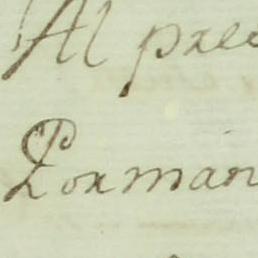 Al prec
Por man